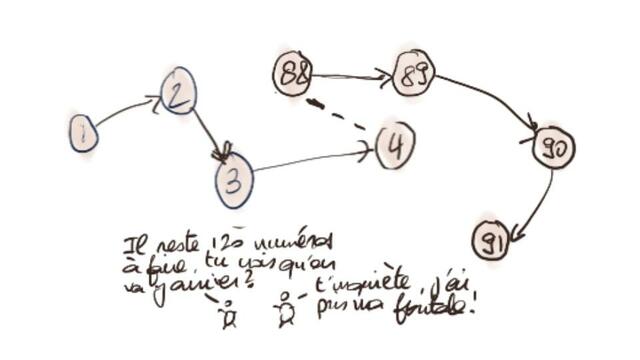 88
89
2
1
4
90
3
91
Il reste 120 numéros
à faire, tu crois qu'on
va y arriver?
t'inquiète, j'ai
pris ma frontale!